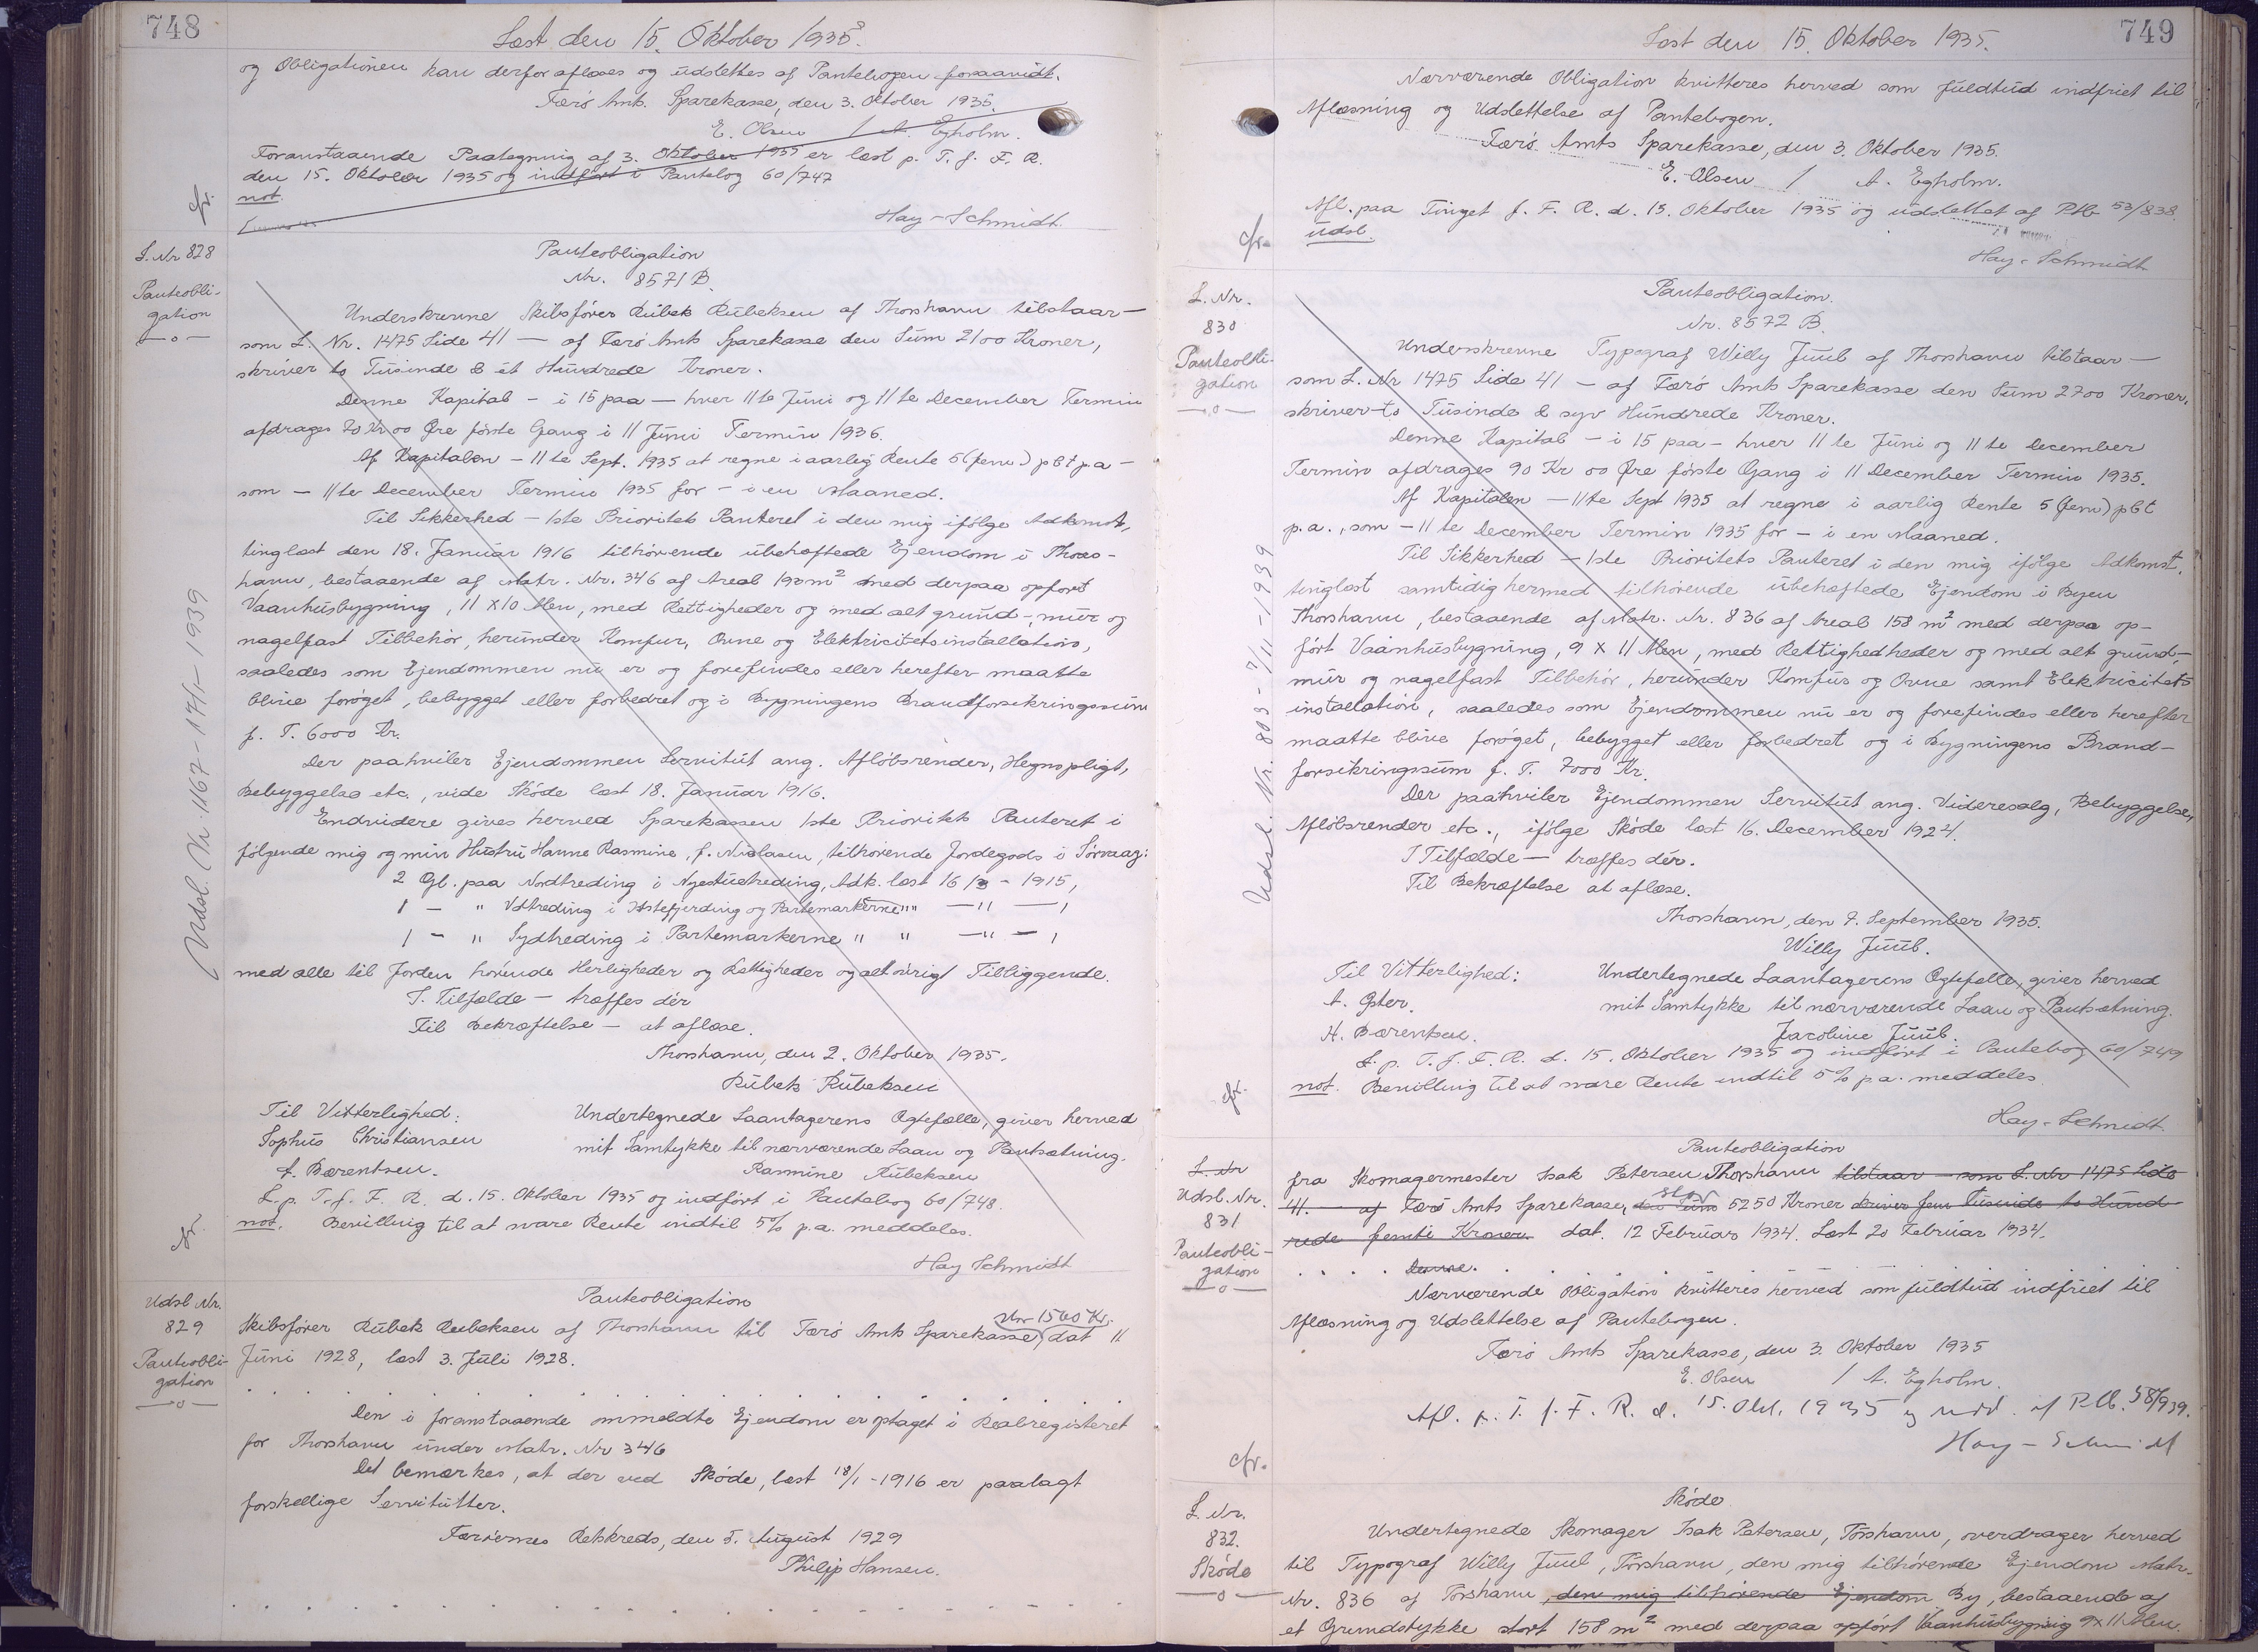 748
Læst den 15. Oktober 1935.
og Obligationen kan derfor aflæses og udslettes af Pantebogen forsaavidt.
Færø Amts Sparekasse, den 3. Oktober 1935.
E. Olsen / A. Egholm.
Foranstaaende Paategning af 3. Oktober 1935 er læst p. T. f. F. R.
den 15. Oktober 1935 og indført i Pantebog 60/747
not.
cfr.
Hay-Schmidt.
L. Nr 828
Pantebli-
gation
—o—
Pantobligation
Nr. 8571 B.
Underskrevne Skibsfører Rubek Rubeksen af Thorshavn tilstaar —
som L. Nr. 1475 Side 41 — af Færø Amts Sparekasse den Sum 2100 Kroner,
skriver to Tusinde & ét Hundrede Kroner.
Denne Kapital – i 15 paa — hver 11te Juni og 11te December Termin
afdrages 70 Kr 00 Øre første Gang i 11 Juni Termin 1936.
Af Kapitalen – 11te Sept. 1935 at regne i aarlig Rente 5 (fem) pCt p.a –
som – 11te December Termin 1935 for – i en Maaned.
Til Sikkerhed – 1ste Prioritets Panteret i den mig ifølge Adkomst,
tinglæst den 18. Januar 1916 tilhørende ubehæftede Ejendom i Thors-
havn, bestaaende af Matr. Nr. 346 af Areal 190 m² med derpaa opført
Vaanhusbygning, 11 x 10 Alen, med Rettigheder og med alt grund-, mur og
nagelfast Tilbehør, herunder Komfur, Ovne og Elektricitetsinstallation,
saaledes som Ejendommen nu er og forefindes eller herefter maatte
blive forøget, bebygget eller forbedret og i Bygningens Brandforsikringssum
p. T. 6000 Kr.
Der paahviler Ejendommen Servitut ang. Afløbsrender, Hegnspligt,
Bebyggelse etc., vide Skøde læst 18. Januar 1916.
Endvidere gives herved Sparekassen 1ste Prioritets Panteret i
følgende mig og min Hustru Hanne Rasmine, f. Niclasen, tilhørende Jordegods i Sørvaag:
2 Gl. paa Nordtreding i Nyestuetreding, Adk. læst 16/3 - 1915,
1 – " Vdtreding i Ystefjerding og Partemarkerne " " —"— ,
1 – " Sydtreding i Partemarkerne " " —"— ,
med alle til Jorden hørende Herligheder og Rettigheder og alt øvrigt Tilliggende.
I. Tilfælde — træffes dér
Til Bekræftelse — at aflæse.
Thorshavn, den 2. Oktober 1935.
Rubek Rubeksen
Til Vitterlighed: Undertegnede Laantagerens Ægtefælle, giver herved
Sophus Christiansen mit Samtykke til nærværende Laan og Pantsætning.
A. Bærentsen. Rasmine Rubeksen
L. p. T. f. F. R. d. 15. Oktober 1935 og indført i Pantebog 60/748.
not. Bevilling til at svare Rente indtil 5% p.a. meddeles.
cfr.
Hay Schmidt
Udsl. Nr. 1167 - 17/1 - 1939
Udsl Nr.
829
Pantebli-
gation
—o—
Pantobligation
Skibsfører Rubek Rubeksen af Thorshavn til Færø Amts Sparekasse, stor 1500 Kr. dat 11
Juni 1928, læst 3. Juli 1928.
Den i foranstaaende ommeldte Ejendom er optaget i Realregisteret
for Thorshavn under Matr. Nr 346
Det bemærkes, at der ved Skøde, læst 18/1 - 1916 er paalagt
forskellige Servitutter.
Færøernes Retskreds, den 5. August 1929
Philip Hansen.
749
Læst den 15. Oktober 1935.
Nærværende Obligation kvitteres herved som fuldtud indfriet til
Aflæsning og Udslettelse af Pantebogen.
Færø Amts Sparekasse, den 3. Oktober 1935.
E. Olsen / A. Egholm.
Afl. paa Tinget f. F. R. d. 15. Oktober 1935 og udslettet af PtB 53/838.
udsl.
cfr.
Hay-Schmidt
L. Nr.
830
Pantebli-
gation
—o—
Pantobligation.
Nr. 8572 B.
Underskrevne Typograf Willy Juul af Thorshavn tilstaar —
som L. Nr 1475 Side 41 – af Færø Amts Sparekasse den Sum 2700 Kroner,
skriver to Tusinde & syv Hundrede Kroner.
Denne Kapital – i 15 paa – hver 11te Juni og 11te December
Termin afdrages 90 Kr 00 Øre første Gang i 11 December Termin 1935.
Af Kapitalen – 11te Sept 1935 at regne i aarlig Rente 5 (fem) pCt
p.a., som – 11te December Termin 1935 for – i en Maaned.
Til Sikkerhed – 1ste Prioritets Panteret i den mig ifølge Adkomst,
tinglæst samtidig hermed tilhørende ubehæftede Ejendom i Byen
Thorshavn, bestaaende af Matr. Nr. 836 af Areal 158 m² med derpaa op-
ført Vaanhusbygning, 9 x 11 Alen, med Rettighedheder og med alt grund-,
mur og nagelfast Tilbehør, herunder Komfur og Ovne samt Elektricitets
installation, saaledes som Ejendommen nu er og forefindes eller herefter
maatte blive forøget, bebygget eller forbedret og i Bygningens Brand-
forsikringssum p. T. 7000 Kr.
Der paahviler Ejendommen Servitut ang. Videresalg, Bebyggelse,
Afløbsrender etc., ifølge Skøde læst 16. December 1924.
I Tilfælde — træffes dér.
Til Bekræftelse at aflæse.
Thorshavn, den 7. September 1935.
Willy Juul.
Til Vitterlighed: Undertegnede Laantagerens Ægtefælle, giver herved
A. Øster. mit Samtykke til nærværende Laan og Pantsætning.
H. Bærentsen. Jacobine Juul.
L. p. T. f. F. R. d. 15. Oktober 1935 og indført i Pantebog 60/749
not. Bevilling til at svare Rente indtil 5% p.a. meddeles.
cfr.
Hay-Schmidt.
Udsl. Nr. 803 - 7/11 - 1939
L. Nr
Udsl. Nr.
831
Pantebli-
gation
—o—
Pantobligation
fra Skomagermester Isak Petersen Thorshavn tilstaar – som L. Nr 1475 Side
41. – af Færø Amts Sparekasse, den Sum stor 5250 Kroner skriver fem Tusinde to Hund-
rede femti Kroner. dat. 12 Februar 1934. Læst 20 Februar 1934.
Denne.
Nærværende Obligation kvitteres herved som fuldtud indfriet til
Aflæsning og Udslettelse af Pantebogen.
Færø Amts Sparekasse, den 3. Oktober 1935
E. Olsen / A. Egholm.
Afl. p. T. f. F. R. d. 15. Okt. 1935 og udsl. af P.B. 58/939.
Hay-Schmidt
cfr.
L. Nr.
832.
Skøde
—o—
Skøde
Undertegnede Skomager Isak Petersen, Torshavn, overdrager herved
til Typograf Willy Juul, Torshavn, den mig tilhørende Ejendom Matr.
Nr. 836 af Torshavn, den mig tilhørende Ejendom By, bestaaende af
et Grundstykke stort 158 m² med derpaa opført Vaanhusbygning 9x11 Alen.